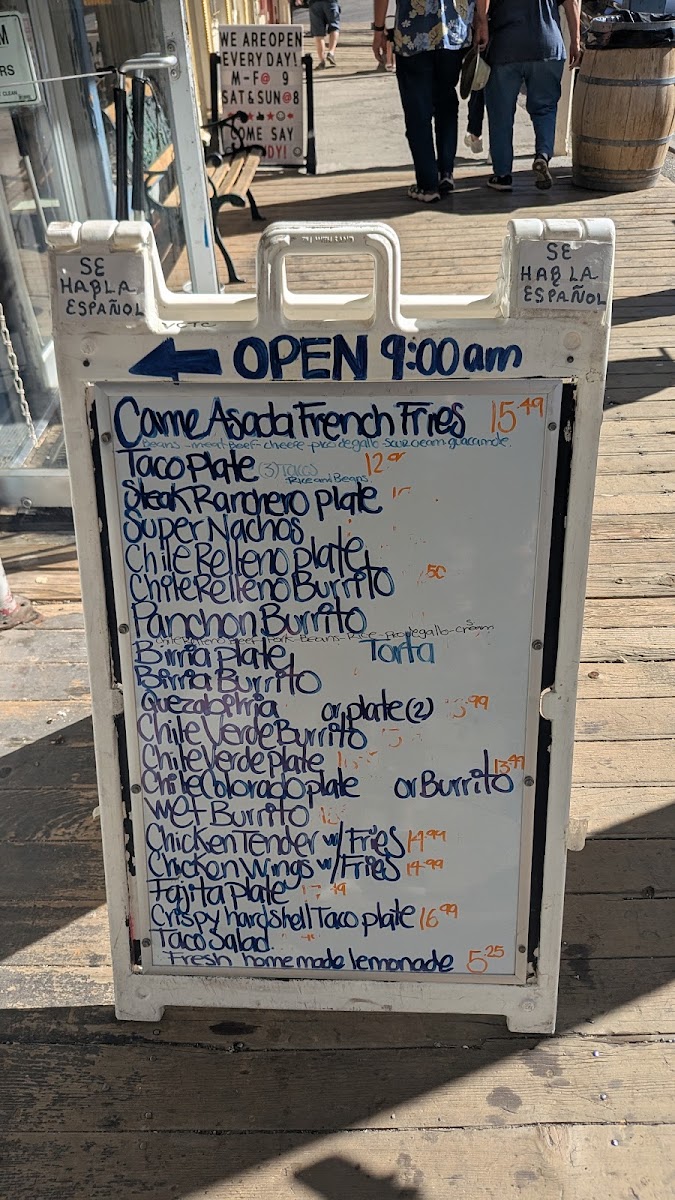 WE ARE OPEN
EVERY DAY!
M-F@ 9
SAT & SUN@8
COME SAY
SE
HABLA
ESPAÑOL
SE
HABLA
ESPAÑOL
OPEN 9:00am
Carne Asada French Fries 15.49
Beans-meat Beef-cheese-pico de gallo-sour cream-guacamole
Taco Plate (3) Tacos 12
Rice and Beans
Steak Ranchero plate
Super Nachos
Chile Relleno plate
Chile Relleno Burrito 50
Panchon Burrito
Chile Relleno-Beef-Pork-Beans-Rice-pico de gallo-S cream
Birria plate Torta
Birria Burrito
Quezabirria or plate (2) 99
Chile Verde Burrito
Chile Verde plate
Chile Colorado plate or Burrito 13.49
Wet Burrito
Chicken Tender w/ Fries 14.99
Chicken Wings w/ Fries 14.99
Fajita plate
Crispy hardshell Taco plate 16.99
Taco Salad
Fresh homemade lemonade 5.25